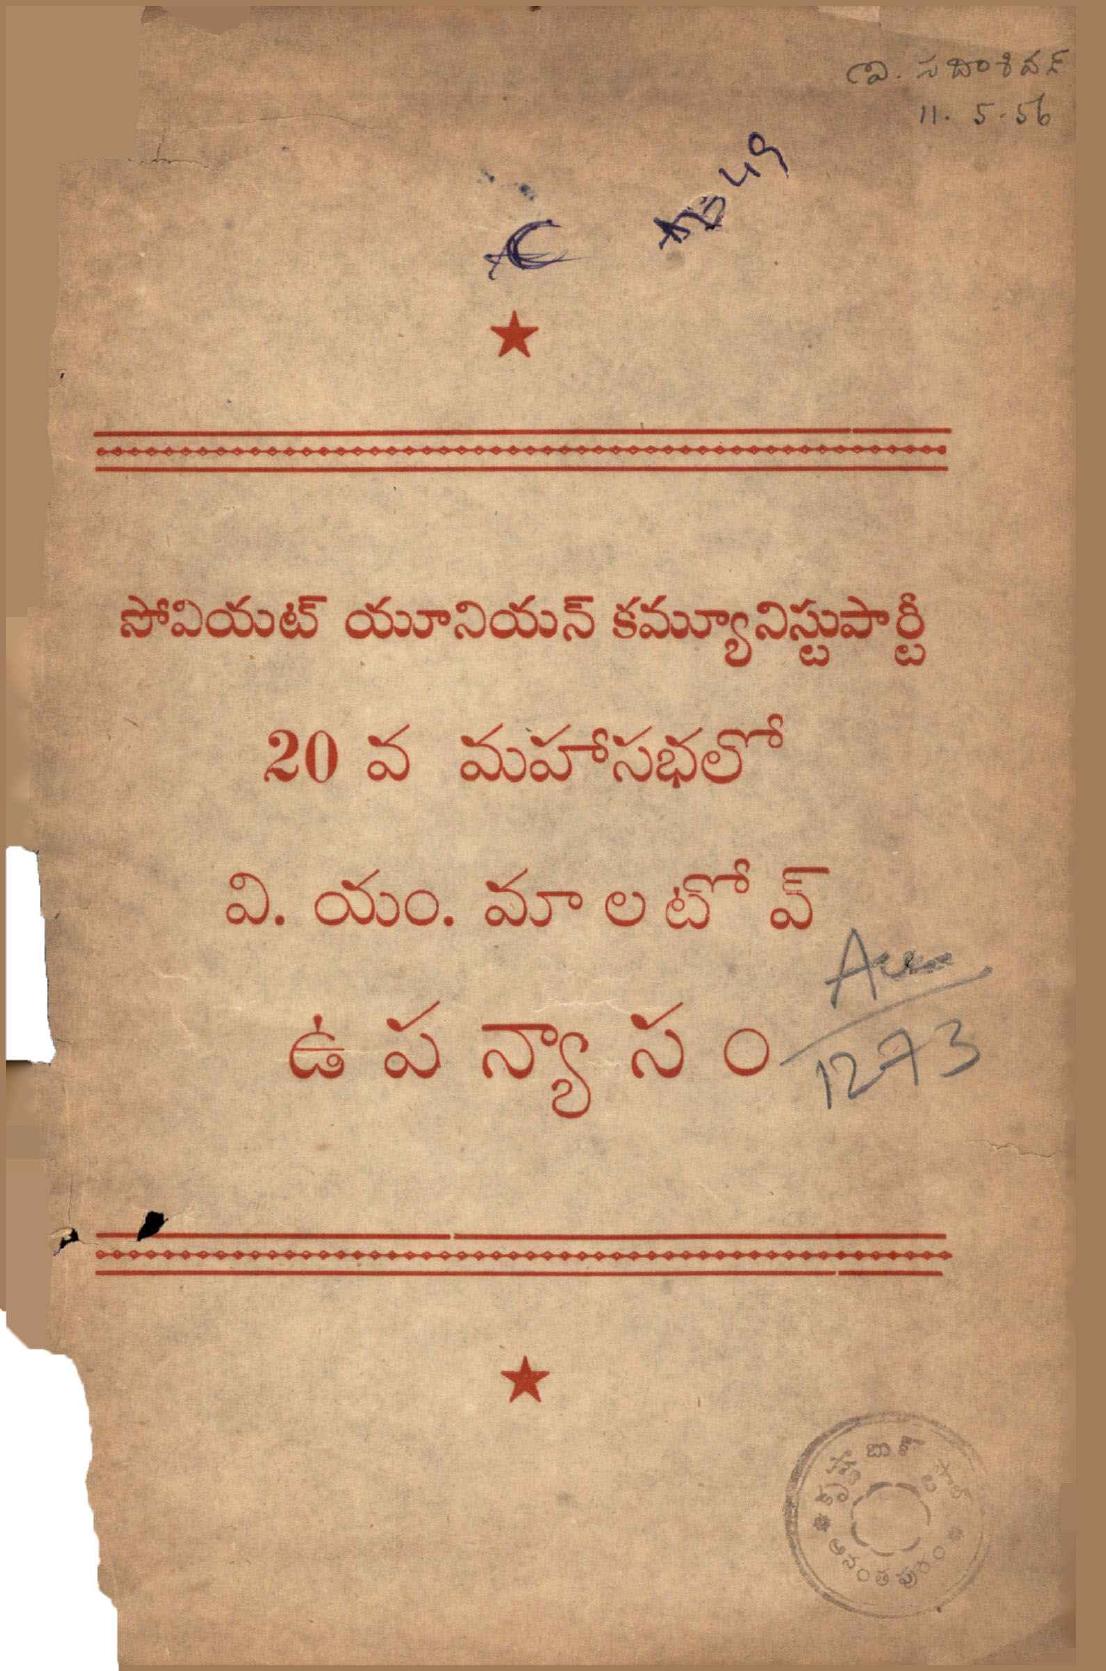 వి. సదాశివన్
11. 5. 56
49
సోవియట్ యూనియన్ కమ్యూనిస్టుపార్టీ
20 వ మహాసభలో
వి. యం. మాలటోవ్
ఉపన్యాసం
1273
అనంతపురం